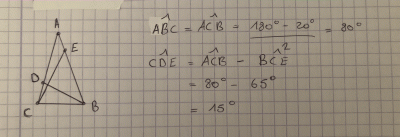 A
E
D
C
B
ABC^ = ACB^ = 180° - 20° = 80°
CDE^ = ACB^ - BCE^
= 80° - 65°
= 15°